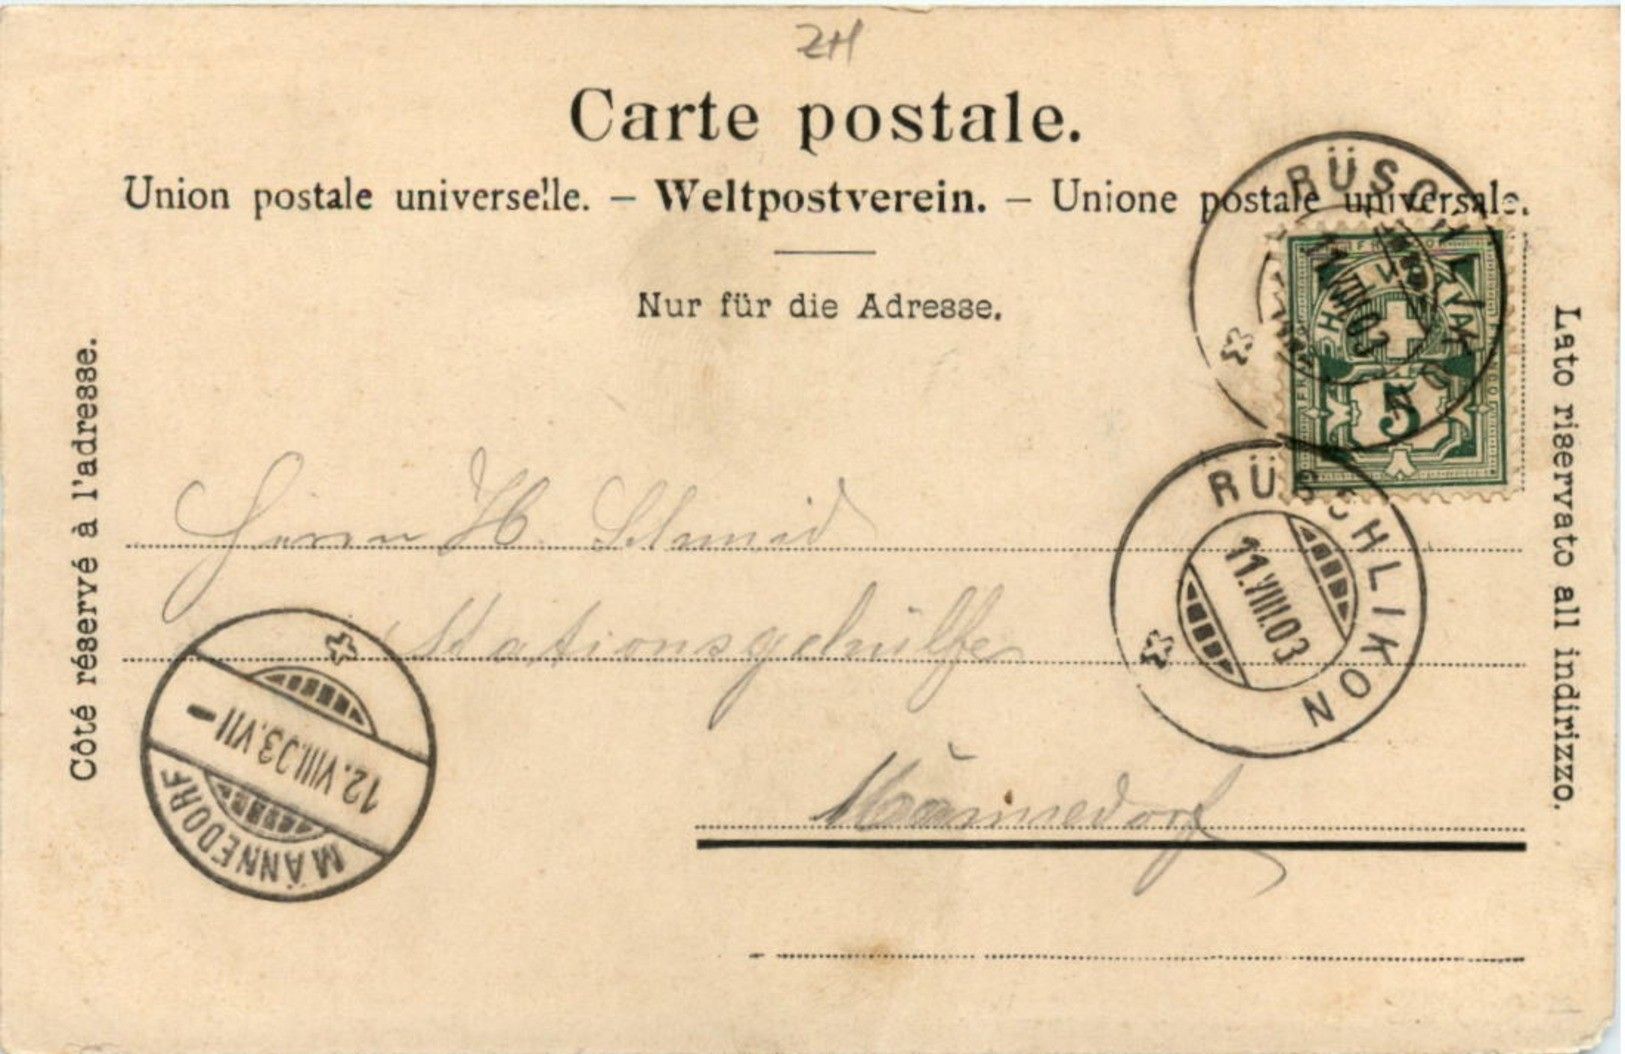 ZH
Carte postale.
Union postale universelle. – Weltpostverein. – Unione postale universale.
Nur für die Adresse.
Côté réservé à l'adresse.
Lato riservato all indirizzo.
RÜSCHLIKON
11.VIII.03
FRANCO
HELVETIA
5
RÜSCHLIKON
11.VIII.03
Herrn H. Schmid
Stationsgehülfe
Männedorf
12.VIII.03.VII –
MÄNNEDORF